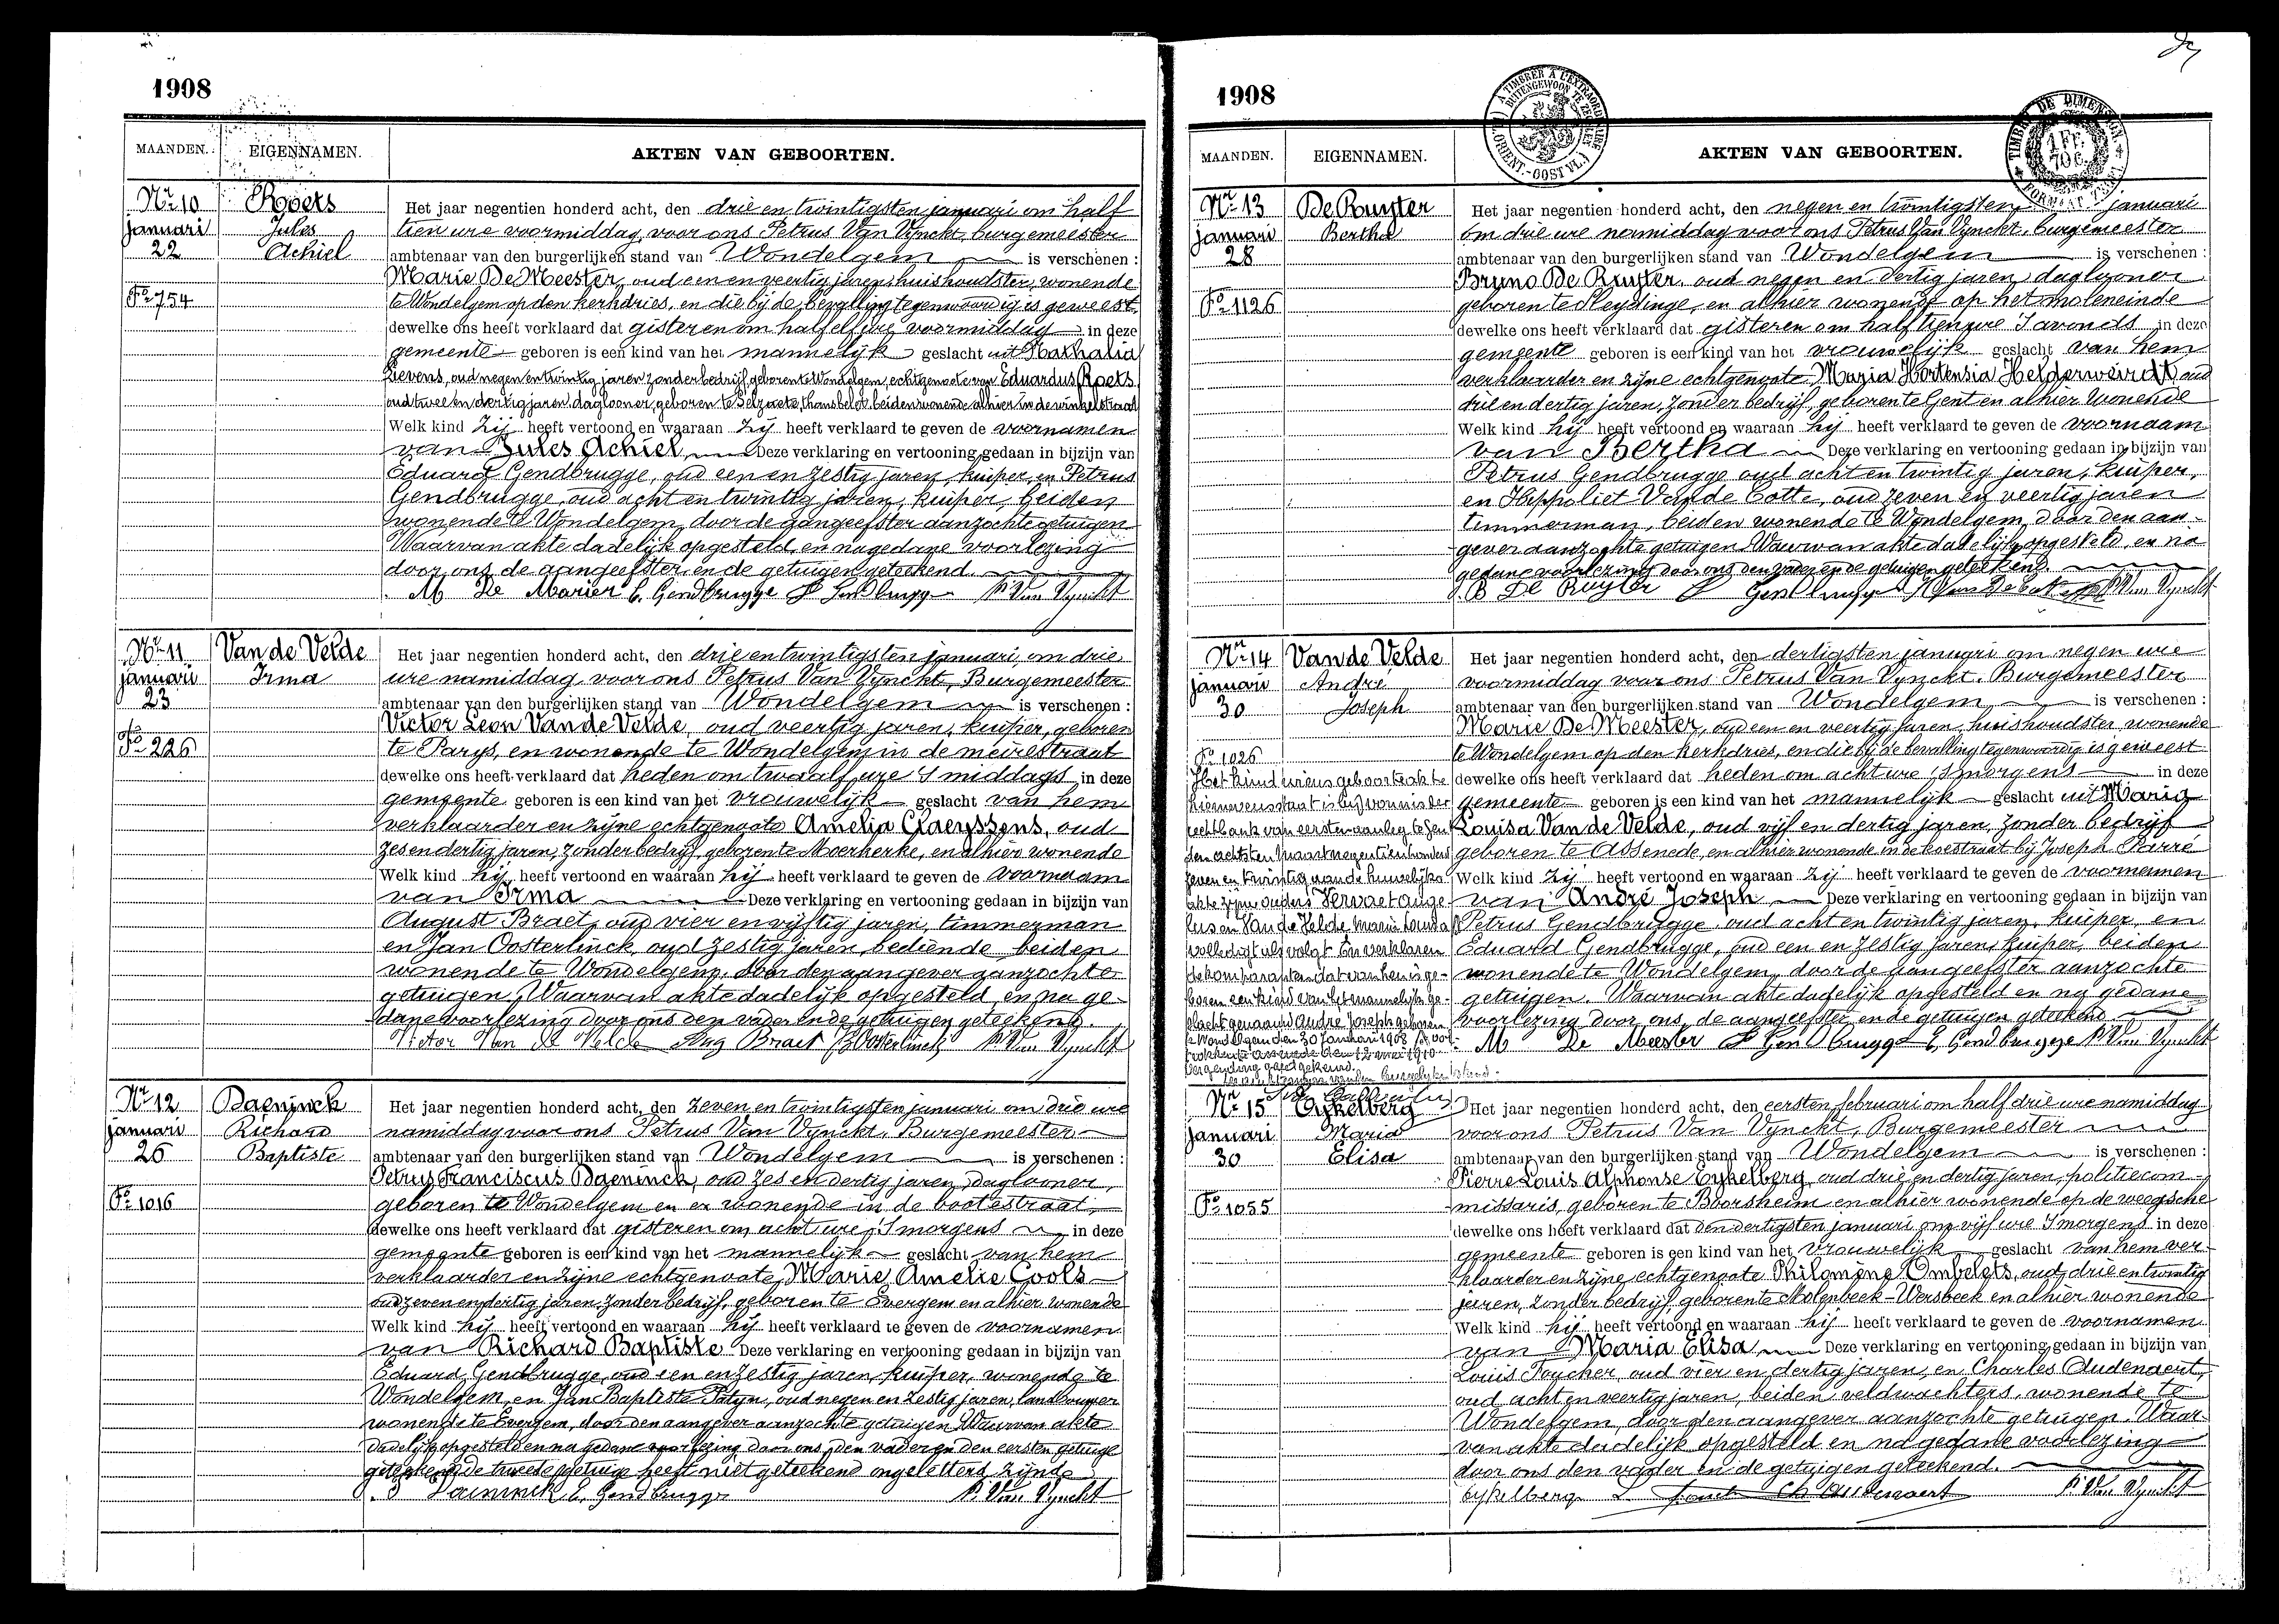 1908
MAANDEN. EIGENNAMEN. AKTEN VAN GEBOORTEN.
Nr 10
januari
22
Fo 754
Roets
Jules
Achiel
Het jaar negentien honderd acht, den drie en twintigsten januari om half
tien ure voormiddag, voor ons Petrus Van Vynckt, burgemeester
ambtenaar van den burgerlijken stand van Wondelgem is verschenen :
Marie De Meester, oud een en veertig jaren, huishoudster, wonende
te Wondelgem op den kerkdries, en die bij de bevalling tegenwoordig is geweest,
dewelke ons heeft verklaard dat gisteren om half elf ure voormiddag in deze
gemeente geboren is een kind van het mannelijk geslacht uit Nathalia
Lievens, oud negen en twintig jaren zonder bedrijf geboren te Wondelgem, echtgenoote van Eduardus Roets
oud twee en dertig jaren, daglooner, geboren te Selzaete, thans belot, beiden wonende alhier in de winkelstraat
Welk kind zij heeft vertoond en waaraan zij heeft verklaard te geven de voornamen
van Jules Achiel, Deze verklaring en vertooning gedaan in bijzijn van
Eduard Gendbrugge, oud een en zestig jaren, kuiper, en Petrus
Gendbrugge, oud acht en twintig jaren, kuiper, beiden
wonende te Wondelgem, door de aangeefster aanzochte getuigen
Waarvan akte dadelijk opgesteld, en na gedane voorlezing
door ons, de aangeefster en de getuigen geteekend.
M De E. Gendbrugge P. Van Vynckt
Nr 11
januari
23
Fo 226
Van de Velde
Irma
Het jaar negentien honderd acht, den drie en twintigsten januari, om drie
ure namiddag, voor ons Petrus Van Vynckt, Burgemeester
ambtenaar van den burgerlijken stand van Wondelgem is verschenen :
Victor Leon Van de Velde, oud veertig jaren, kuiper, geboren
te Parys, en wonende te Wondelgem in de meirestraat
dewelke ons heeft verklaard dat heden om twaalf ure 's middags in deze
gemeente geboren is een kind van het vrouwelijk geslacht van hem
verklaarder en zijne echtgenoote Amelia Claeyssens, oud
zes en dertig jaren, zonder bedrijf, geboren te Moerkerke, en alhier wonende
Welk kind hij heeft vertoond en waaraan hij heeft verklaard te geven de voornaam
van Irma Deze verklaring en vertooning gedaan in bijzijn van
August Braet, oud vier en vijftig jaren, timmerman
en Jan Oosterlinck, oud zestig jaren, bediende beiden
wonende te Wondelgem, door den aangever aanzochte
getuigen, Waarvan akte dadelijk opgesteld, en na ge-
dane voorlezing door ons den vader en de getuigen geteekend.
Victor Van de Velde Aug Braet Oosterlinck P. Van Vynckt
Nr 12
januari
26
Fo 1016
Daeninck
Richard
Baptiste
Het jaar negentien honderd acht, den zeven en twintigsten januari om drie ure
namiddag voor ons Petrus Van Vynckt, Burgemeester
ambtenaar van den burgerlijken stand van Wondelgem is verschenen :
Petrus Franciscus Daeninck, oud zes en dertig jaren, daglooner,
geboren te Wondelgem en er wonende in de bootestraat,
dewelke ons heeft verklaard dat gisteren om acht ure 's morgens in deze
gemeente geboren is een kind van het mannelijk geslacht van hem
verklaarder en zijne echtgenoote, Marie Amelie Cools
oud zeven en dertig jaren, zonder bedrijf, geboren te Evergem en alhier wonende
Welk kind hij heeft vertoond en waaraan hij heeft verklaard te geven de voornamen
van Richard Baptiste Deze verklaring en vertooning gedaan in bijzijn van
Eduard Gendbrugge, oud een en zestig jaren, kuiper, wonende te
Wondelgem, en Jan Baptiste oud negen en zestig jaren, landbouwer
wonende te Evergem, door den aangever aanzochte getuigen Waarvan akte
dadelijk opgesteld en na gedane voorlezing door ons, den vader en den eersten getuige
geteekend de tweede getuige heeft niet geteekend ongeletterd zijnde
E. Gendbrugge P. Van Vynckt
1908
A TIMBRER À L'EXTRAORDINAIRE
BUITENGEWOON TE ZEGELEN
(FL. ORIENT.-OOST VL.)
TIMBRE DE DIMENSION
1 Fr.
70 C.
MAANDEN. EIGENNAMEN. AKTEN VAN GEBOORTEN.
Nr 13
januari
28
Fo 1126
De Ruyter
Bertha
Het jaar negentien honderd acht, den negen en twintigsten januari
om drie ure namiddag voor ons Petrus Van Vynckt, burgemeester
ambtenaar van den burgerlijken stand van Wondelgem is verschenen :
Bruno De Ruyter, oud negen en dertig jaren, daglooner
geboren te Sleydinge, en alhier wonende op het moleneinde
dewelke ons heeft verklaard dat gisteren om half tien ure 's avonds in deze
gemeente geboren is een kind van het vrouwelijk geslacht van hem
verklaarder en zijne echtgenoote Maria Hortensia Helderweirdt oud
drie en dertig jaren, zonder bedrijf, geboren te Gent en alhier wonende
Welk kind hij heeft vertoond en waaraan hij heeft verklaard te geven de voornaam
van Bertha Deze verklaring en vertooning gedaan in bijzijn van
Petrus Gendbrugge oud acht en twintig jaren, kuiper,
en Hippoliet Van de Cotte, oud zeven en veertig jaren
timmerman, beiden wonende te Wondelgem, door den aan-
gever aanzochte getuigen Waarvan akte dadelijk opgesteld, en na
gedane voorlezing door ons den vader en de getuigen geteekend.
B De Ruyter P. Van Vynckt
Nr 14
januari
30
Fo 1026
Van de Velde
André
Joseph
Het kind wiens geboorteakte
hiernevensstaat is bij vonnis der
rechtbank van eersten aanleg te Gent
den achtsten Maart negentienhonderd
zeven en twintig aan de huwelijks
akte zijner ouders
en Van de Velde Maria Louisa
volledigt als volgt te verklaren
de komparanten dat van hen is ge-
boren een kind van het mannelijk ge-
slacht genaamd André Joseph geboren
te Wondelgem den 30 Januari 1908
Het jaar negentien honderd acht, den dertigsten januari om negen ure
voormiddag voor ons Petrus Van Vynckt, Burgemeester
ambtenaar van den burgerlijken stand van Wondelgem, is verschenen :
Marie De Meester, oud een en veertig jaren, huishoudster wonende
te Wondelgem op den kerkdries, en die bij de bevalling tegenwoordig is geweest
dewelke ons heeft verklaard dat heden om acht ure 's morgens in deze
gemeente geboren is een kind van het mannelijk geslacht uit Maria
Louisa Van de Velde, oud vijf en dertig jaren, zonder bedrijf
geboren te Assenede, en alhier wonende in de koestraat bij Joseph Parré
Welk kind zij heeft vertoond en waaraan zij heeft verklaard te geven de voornamen
van André Joseph Deze verklaring en vertooning gedaan in bijzijn van
Petrus Gendbrugge, oud acht en twintig jaren, kuiper, en
Eduard Gendbrugge, oud een en zestig jaren, kuiper, beiden
wonende te Wondelgem, door de aangeefster aanzochte
getuigen. Waarvan akte dadelijk opgesteld en na gedane
voorlezing door ons, de aangeefster en de getuigen geteekend
M De Meester P Gendbrugge E. Gendbrugge P. Van Vynckt
Nr 15
januari
30
Fo 1055
Eykelberg
Maria
Elisa
Het jaar negentien honderd acht, den eersten februari om half drie ure namiddag
voor ons Petrus Van Vynckt, Burgemeester
ambtenaar van den burgerlijken stand van Wondelgem is verschenen :
Pierre Louis Alphonse Eykelberg, oud drie en dertig jaren, politiecom-
missaris, geboren te Boorsheim en alhier wonende op de weegsche
dewelke ons heeft verklaard dat den dertigsten januari om vijf ure 's morgens in deze
gemeente geboren is een kind van het vrouwelijk geslacht van hem ver-
klaarder en zijne echtgenoote Philomène Ombelets, oud drie en twintig
jaren, zonder bedrijf geboren te Molenbeek-Wersbeek en alhier wonende
Welk kind hij heeft vertoond en waaraan hij heeft verklaard te geven de voornamen
van Maria Elisa Deze verklaring en vertooning gedaan in bijzijn van
Louis Foucher, oud vier en dertig jaren, en Charles Oudenaert,
oud acht en veertig jaren, beiden veldwachters, wonende te
Wondelgem, door den aangever aanzochte getuigen. Waar-
van akte dadelijk opgesteld en na gedane voorlezing
door ons den vader en de getuigen geteekend.
Eykelberg Ch Oudenaert P. Van Vynckt